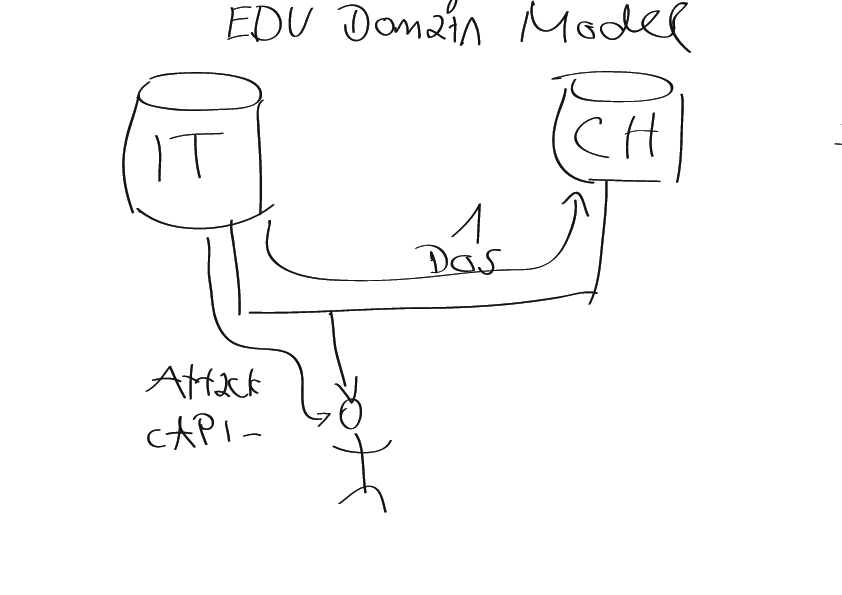 EDU Domain Model
IT
CH
1
DOS
Attack
CAPI-